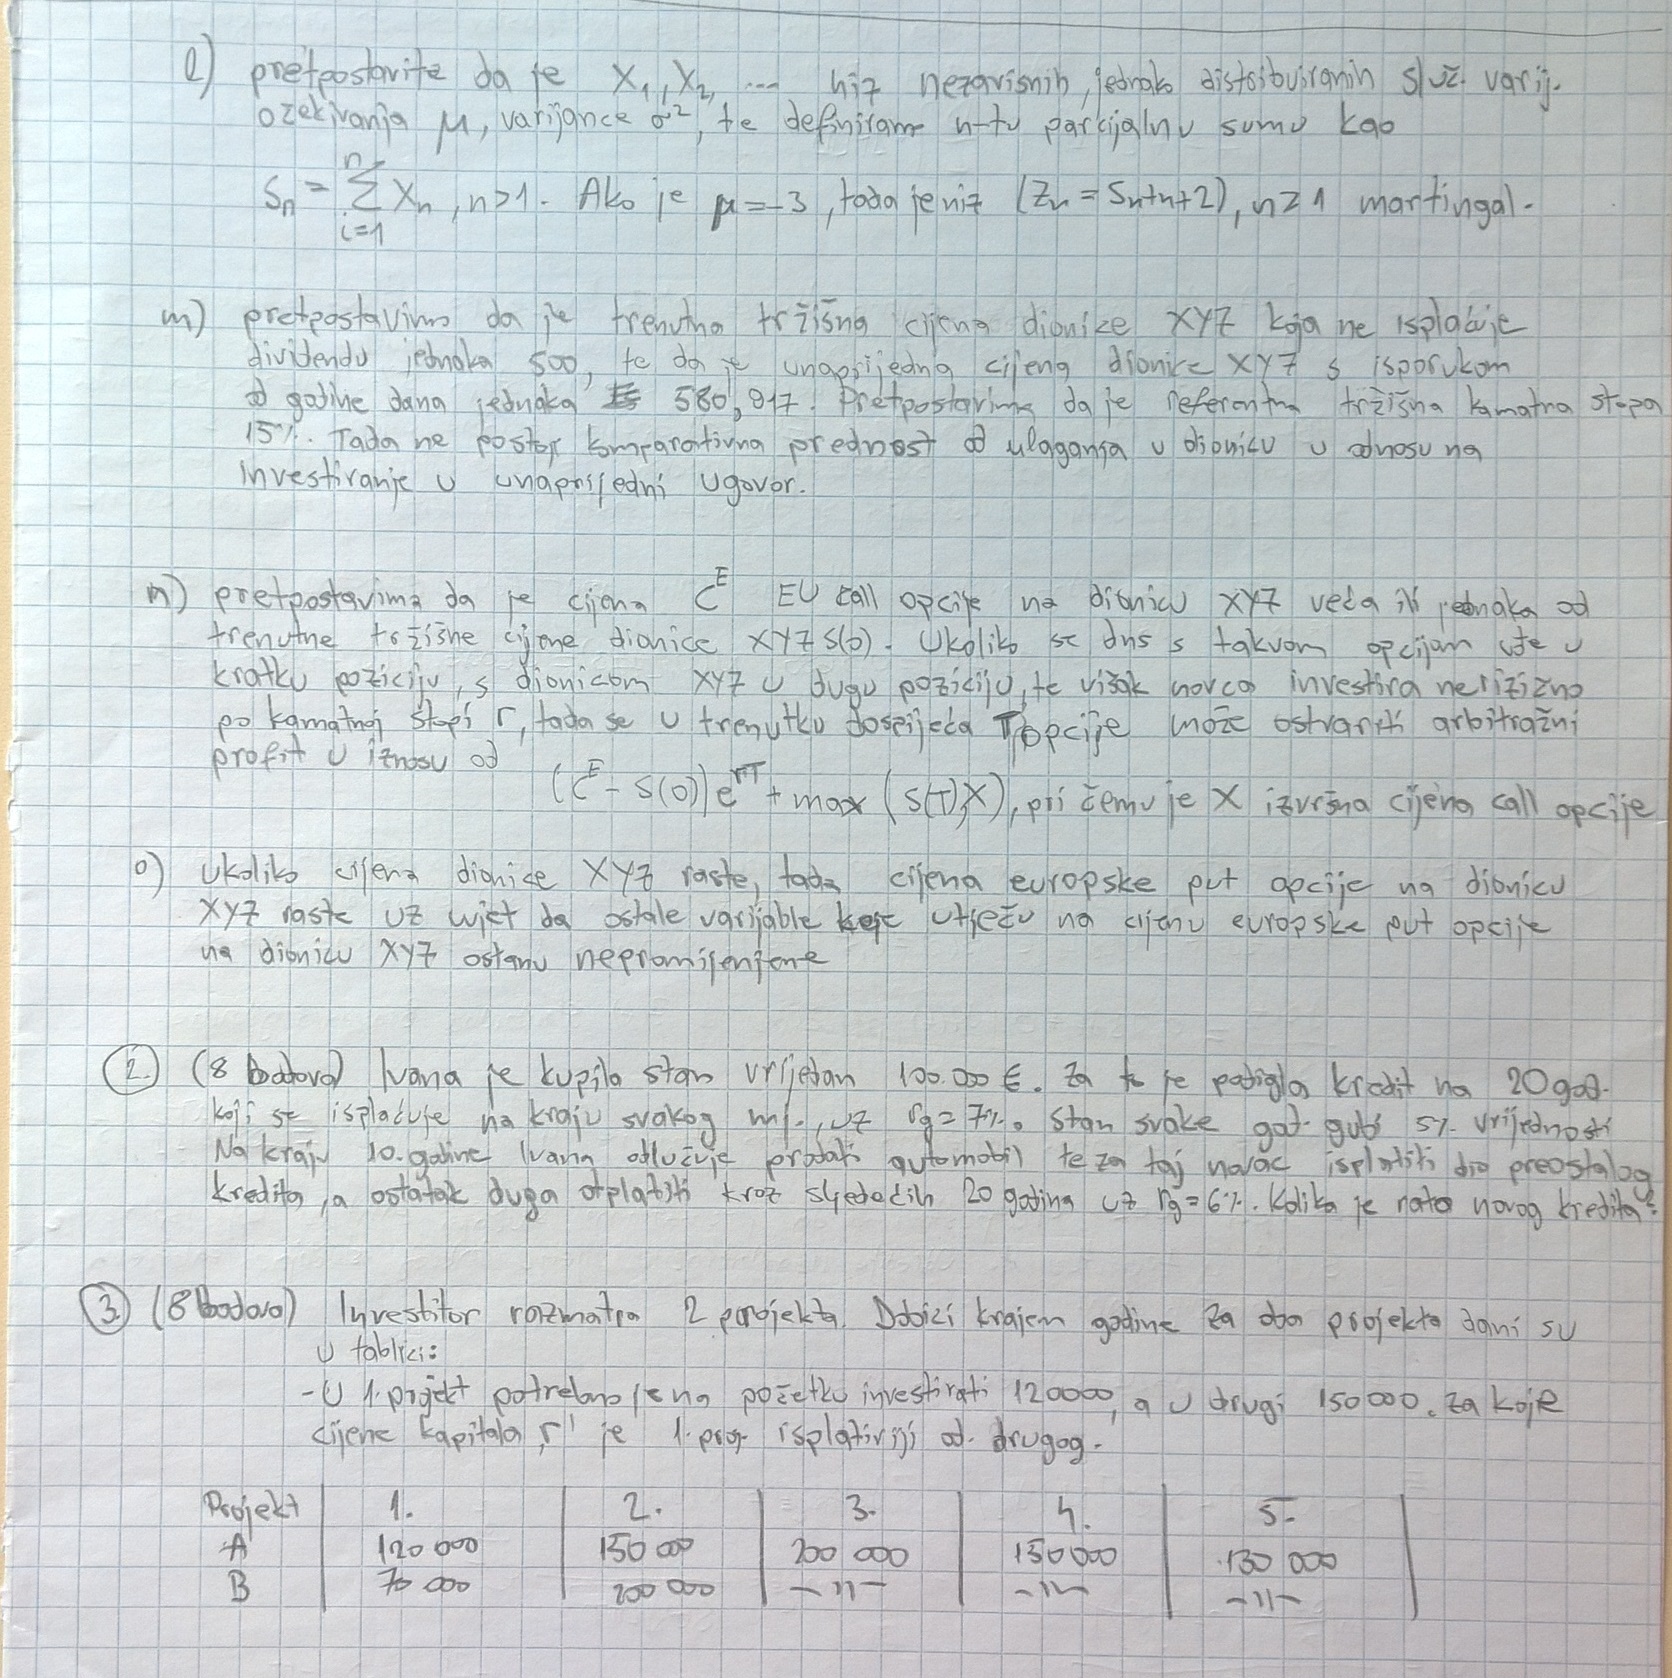 l) pretpostavite da je X₁, X₂, ... niz nezavisnih, jednako distribuiranih sluč. varij.
očekivanja μ, varijance σ², te definiramo n-tu parcijalnu sumu kao
Sₙ = Σ Xₙ, n>1. Ako je μ=-3, tada je niz (Zₙ = Sₙ+n+2), n≥1 martingal.
n
i=1
m) pretpostavimo da je trenutna tržišna cijena dionice XYZ koja ne isplaćuje
dividendu jednaka 500, te da je unaprijedna cijena dionice XYZ s isporukom
od godine dana jednaka 580,917. Pretpostavimo da je referentna tržišna kamatna stopa
15%. Tada ne postoji komparativna prednost od ulaganja u dionicu u odnosu na
investiranje u unaprijedni ugovor.
n) pretpostavimo da je cijena Cᴱ EU call opcije na dionicu XYZ veća ili jednaka od
trenutne tržišne cijene dionice XYZ S(0). Ukoliko se dns s takvom opcijom uđe u
kratku poziciju, s dionicom XYZ u dugu poziciju, te višak novca investira nerizično
po kamatnoj stopi r, tada se u trenutku dospijeća T opcije može ostvariti arbitražni
profit u iznosu od
(Cᴱ - S(0))eʳᵀ + max (S(T),X), pri čemu je X izvršna cijena call opcije
o) Ukoliko cijena dionice XYZ raste, tada cijena europske put opcije na dionicu
XYZ raste uz uvjet da ostale varijable koje utječu na cijenu europske put opcije
na dionicu XYZ ostanu nepromijenjene
2. (8 bodova) Ivana je kupila stan vrijedan 100.000 €. Za to je podigla kredit na 20 god.
koji se isplaćuje na kraju svakog mj., uz rg = 7%. Stan svake god. gubi 5% vrijednosti
Na kraju 10. godine Ivana odlučuje prodati automobil te za taj novac isplatiti dio preostalog
kredita, a ostatak duga otplatiti kroz sljedećih 20 godina uz rg = 6%. Kolika je rata novog kredita?
3. (8 bodova) Investitor razmatra 2 projekta. Dobici krajem godine za oba projekta dani su
u tablici:
- U 1. projekt potrebno je na početku investirati 120000, a u drugi 150000. Za koje
cijene kapitala "r" je 1. proj. isplativiji od drugog.
Projekt | 1. | 2. | 3. | 4. | 5. |
A | 120 000 | 150 000 | 200 000 | 150000 | 130 000 |
B | 70 000 | 200 000 | -11- | -11- | -11- |